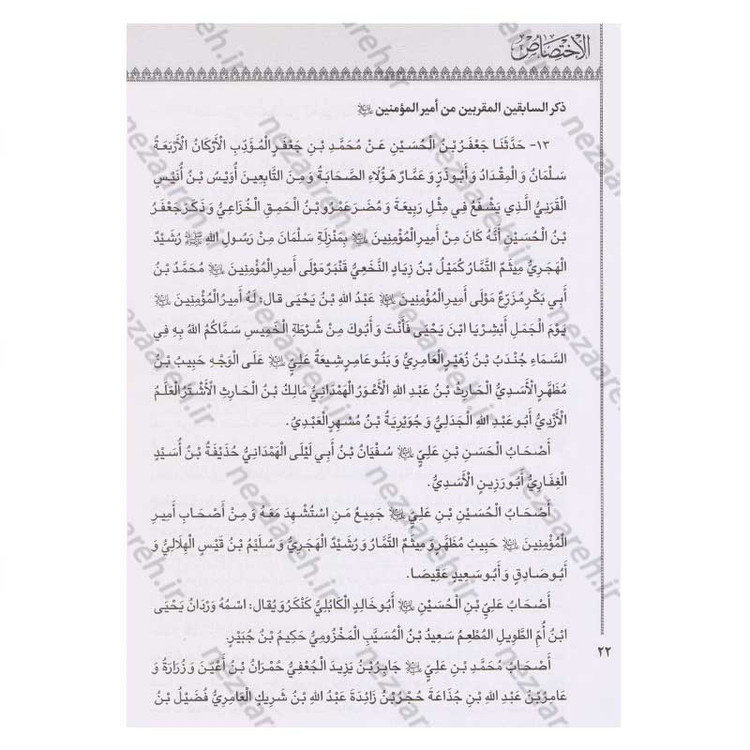 الإختصاص
ذكر السابقين المقربين من أمير المؤمنين
١٣- حَدَّثَنَا جَعْفَرُ بْنُ الْحُسَيْنِ عَنْ مُحَمَّدِ بْنِ جَعْفَرٍ الْمُؤَدِّبِ الْأَرْكَانُ الْأَرْبَعَةُ
سَلْمَانُ وَ الْمِقْدَادُ وَ أَبُوذَرٍّ وَ عَمَّارٌ هَؤُلَاءِ الصَّحَابَةُ وَ مِنَ التَّابِعِينَ أُوَيْسُ بْنُ أُنَيْسٍ
الْقَرَنِيُّ الَّذِي يَشْفَعُ فِي مِثْلِ رَبِيعَةَ وَ مُضَرَ عَمْرُو بْنُ الْحَمِقِ الْخُزَاعِيُّ وَ ذَكَرَ جَعْفَرُ
بْنُ الْحُسَيْنِ أَنَّهُ كَانَ مِنْ أَمِيرِ الْمُؤْمِنِينَ بِمَنْزِلَةِ سَلْمَانَ مِنْ رَسُولِ اللهِ رُشَيْدٌ
الْهَجَرِيُّ مِيثَمٌ التَّمَّارُ كُمَيْلُ بْنُ زِيَادٍ النَّخَعِيُّ قَنْبَرٌ مَوْلَى أَمِيرِ الْمُؤْمِنِينَ مُحَمَّدُ بْنُ
أَبِي بَكْرٍ مُزَرِّعٌ مَوْلَى أَمِيرِ الْمُؤْمِنِينَ عَبْدُ اللهِ بْنُ يَحْيَى قال: لَهُ أَمِيرُ الْمُؤْمِنِينَ
يَوْمَ الْجَمَلِ أَبْشِرْ يَا ابْنَ يَحْيَى فَأَنْتَ وَ أَبُوكَ مِنْ شُرْطَةِ الْخَمِيسِ سَمَّاكُمُ اللهُ بِهِ فِي
السَّمَاءِ جُنْدَبُ بْنُ زُهَيْرٍ الْعَامِرِيُّ وَ بَنُو عَامِرٍ شِيعَةُ عَلِيٍّ عَلَى الْوَجْهِ حَبِيبُ بْنُ
مُظَهَّرٍ الْأَسَدِيُّ الْحَارِثُ بْنُ عَبْدِ اللهِ الْأَعْوَرُ الْهَمْدَانِيُّ مَالِكُ بْنُ الْحَارِثِ الْأَشْتَرُ الْعَلَمُ
الْأَزْدِيُّ أَبُو عَبْدِ اللهِ الْجَدَلِيُّ وَ جُوَيْرِيَةُ بْنُ مُسْهِرٍ الْعَبْدِيُّ.
أَصْحَابُ الْحَسَنِ بْنِ عَلِيٍّ سُفْيَانُ بْنُ أَبِي لَيْلَى الْهَمْدَانِيُّ حُذَيْفَةُ بْنُ أُسَيْدٍ
الْغِفَارِيُّ أَبُو رَزِينٍ الْأَسَدِيُّ.
أَصْحَابُ الْحُسَيْنِ بْنِ عَلِيٍّ جَمِيعُ مَنِ اسْتُشْهِدَ مَعَهُ وَ مِنْ أَصْحَابِ أَمِيرِ
الْمُؤْمِنِينَ حَبِيبُ مُظَهَّرٍ وَ مِيثَمٌ التَّمَّارُ وَ رُشَيْدٌ الْهَجَرِيُّ وَ سُلَيْمُ بْنُ قَيْسٍ الْهِلَالِيُّ وَ
أَبُو صَادِقٍ وَ أَبُو سَعِيدٍ عَقِيصَا.
أَصْحَابُ عَلِيِّ بْنِ الْحُسَيْنِ أَبُو خَالِدٍ الْكَابُلِيُّ كَنْكَرُ وَ يُقَالُ: اسْمُهُ وَرْدَانُ يَحْيَى
ابْنُ أُمِّ الطَّوِيلِ الْمُطْعِمُ سَعِيدُ بْنُ الْمُسَيَّبِ الْمَخْزُومِيُّ حَكِيمُ بْنُ جُبَيْرٍ.
٢٢
أَصْحَابُ مُحَمَّدِ بْنِ عَلِيٍّ جَابِرُ بْنُ يَزِيدَ الْجُعْفِيُّ حُمْرَانُ بْنُ أَعْيَنَ وَ زُرَارَةُ وَ
عَامِرُ بْنُ عَبْدِ اللهِ بْنِ جُذَاعَةَ حُجْرُ بْنُ زَائِدَةَ عَبْدُ اللهِ بْنُ شَرِيكٍ الْعَامِرِيُّ فُضَيْلُ بْنُ
nezaareh.ir